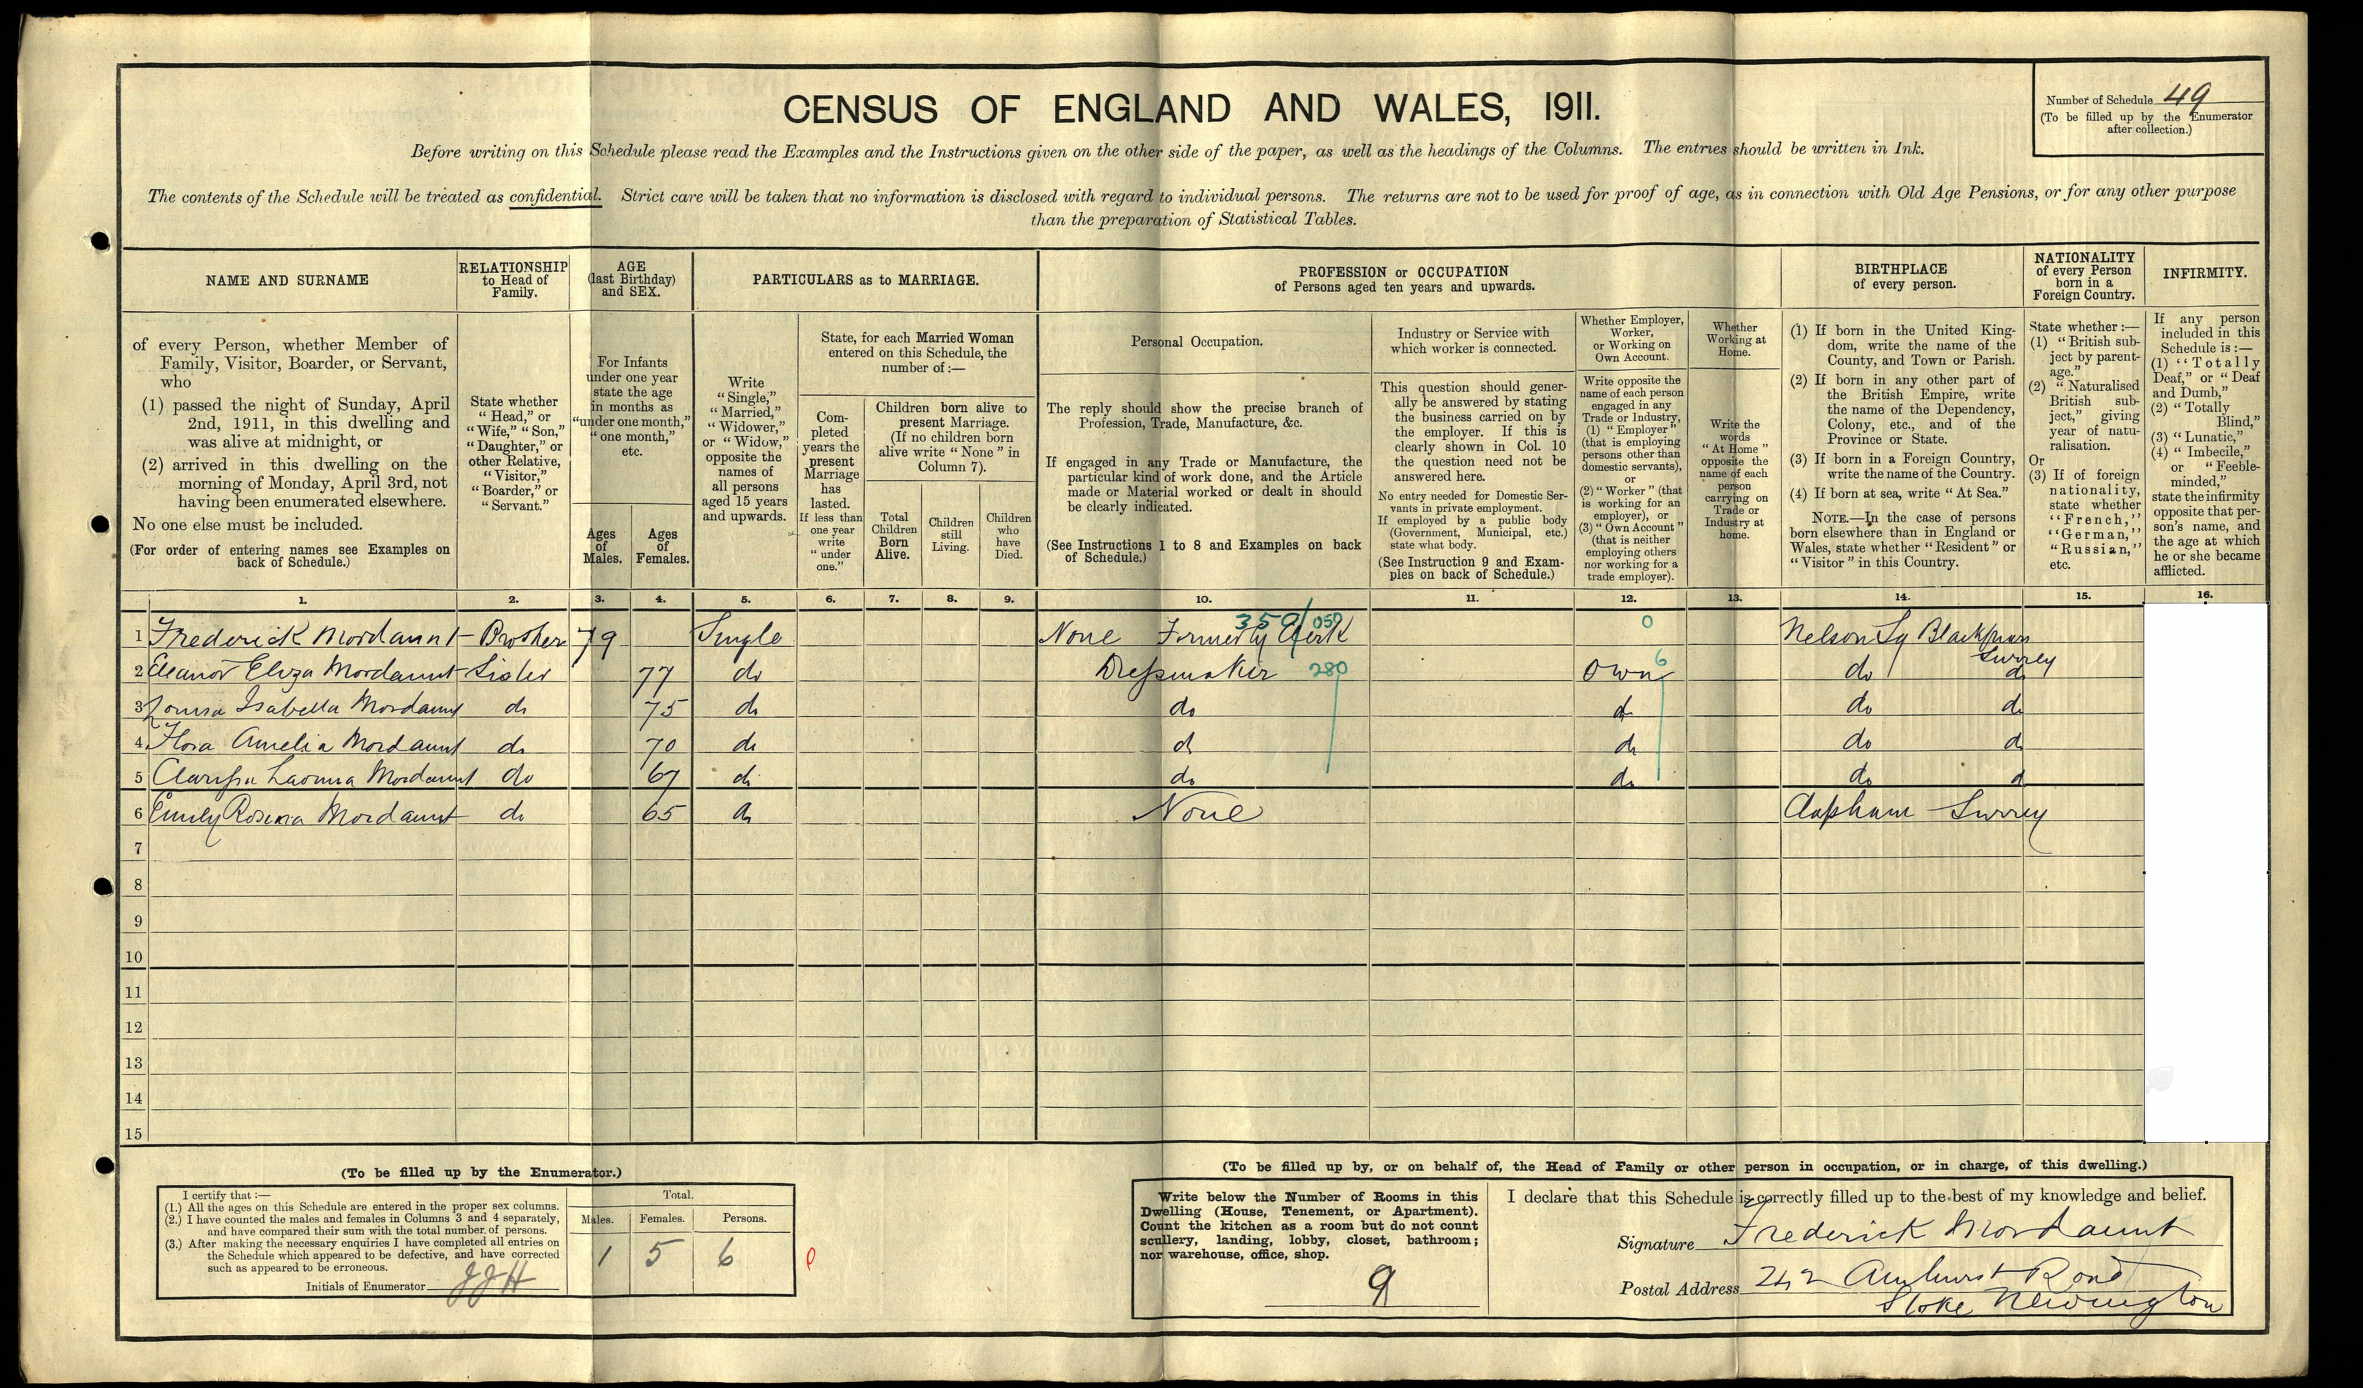 CENSUS OF ENGLAND AND WALES, 1911.
Number of Schedule 49
(To be filled up by the Enumerator
after collection.)
Before writing on this Schedule please read the Examples and the Instructions given on the other side of the paper, as well as the headings of the Columns. The entries should be written in Ink.
The contents of the Schedule will be treated as confidential. Strict care will be taken that no information is disclosed with regard to individual persons. The returns are not to be used for proof of age, as in connection with Old Age Pensions, or for any other purpose
than the preparation of Statistical Tables.
NAME AND SURNAME
of every Person, whether Member of
Family, Visitor, Boarder, or Servant,
who
(1) passed the night of Sunday, April
2nd, 1911, in this dwelling and
was alive at midnight, or
(2) arrived in this dwelling on the
morning of Monday, April 3rd, not
having been enumerated elsewhere.
No one else must be included.
(For order of entering names see Examples on
back of Schedule.)
RELATIONSHIP
to Head of
Family.
State whether
"Head," or
"Wife," "Son,"
"Daughter," or
other Relative,
"Visitor,"
"Boarder," or
"Servant."
AGE
(last Birthday)
and SEX.
For Infants
under one year
state the age
in months as
"under one month,"
"one month,"
etc.
Ages
of
Males.
Ages
of
Females.
PARTICULARS as to MARRIAGE.
Write
"Single,"
"Married,"
"Widower,"
or "Widow,"
opposite the
names of
all persons
aged 15 years
and upwards.
State, for each Married Woman
entered on this Schedule, the
number of:—
Com-
pleted
years the
present
Marriage
has
lasted.
If less than
one year
write
"under
one."
Children born alive to
present Marriage.
(If no children born
alive write "None" in
Column 7).
Total
Children
Born
Alive.
Children
still
Living.
Children
who
have
Died.
PROFESSION or OCCUPATION
of Persons aged ten years and upwards.
Personal Occupation.
The reply should show the precise branch of
Profession, Trade, Manufacture, &c.
If engaged in any Trade or Manufacture, the
particular kind of work done, and the Article
made or Material worked or dealt in should
be clearly indicated.
(See Instructions 1 to 8 and Examples on back
of Schedule.)
Industry or Service with
which worker is connected.
This question should gener-
ally be answered by stating
the business carried on by
the employer. If this is
clearly shown in Col. 10
the question need not be
answered here.
No entry needed for Domestic Ser-
vants in private employment.
If employed by a public body
(Government, Municipal, etc.)
state what body.
(See Instruction 9 and Exam-
ples on back of Schedule.)
Whether Employer,
Worker,
or Working on
Own Account.
Write opposite the
name of each person
engaged in any
Trade or Industry,
(1) "Employer"
(that is employing
persons other than
domestic servants),
or
(2) "Worker" (that
is working for an
employer), or
(3) "Own Account"
(that is neither
employing others
nor working for a
trade employer).
Whether
Working at
Home.
Write the
words
"At Home"
opposite the
name of each
person
carrying on
Trade or
Industry at
home.
BIRTHPLACE
of every person.
(1) If born in the United King-
dom, write the name of the
County, and Town or Parish.
(2) If born in any other part of
the British Empire, write
the name of the Dependency,
Colony, etc., and of the
Province or State.
(3) If born in a Foreign Country,
write the name of the Country.
(4) If born at sea, write "At Sea."
NOTE.—In the case of persons
born elsewhere than in England or
Wales, state whether "Resident" or
"Visitor" in this Country.
NATIONALITY
of every Person
born in a
Foreign Country.
State whether :—
(1) "British sub-
ject by parent-
age."
(2) "Naturalised
British sub-
ject," giving
year of natu-
ralisation.
Or
(3) If of foreign
nationality,
state whether
"French,"
"German,"
"Russian,"
etc.
INFIRMITY.
If any person
included in this
Schedule is:—
(1) "Totally
Deaf," or "Deaf
and Dumb,"
(2) "Totally
Blind,"
(3) "Lunatic,"
(4) "Imbecile,"
or "Feeble-
minded,"
state the infirmity
opposite that per-
son's name, and
the age at which
he or she became
afflicted.
1. 2. 3. 4. 5. 6. 7. 8. 9. 10. 11. 12. 13. 14. 15. 16.
350/050
1 Frederick Mordaunt Brother 79 Single None Formerly Clerk 0 Nelson Sq Blackfriars
Surrey
2 Eleanor Eliza Mordaunt Sister 77 do Dressmaker 280 Own 6 do do
3 Louisa Isabella Mordaunt do 75 do do do do do
4 Flora Amelia Mordaunt do 70 do do do do do
5 Clarissa Mordaunt do 67 do do do do do
6 Emily Rosina Mordaunt do 65 do None Clapham Surrey
7
8
9
10
11
12
13
14
15
(To be filled up by the Enumerator.)
I certify that :—
(1.) All the ages on this Schedule are entered in the proper sex columns.
(2.) I have counted the males and females in Columns 3 and 4 separately,
and have compared their sum with the total number of persons.
(3.) After making the necessary enquiries I have completed all entries on
the Schedule which appeared to be defective, and have corrected
such as appeared to be erroneous.
Initials of Enumerator JJH
Total.
Males. Females. Persons.
1 5 6
(To be filled up by, or on behalf of, the Head of Family or other person in occupation, or in charge, of this dwelling.)
Write below the Number of Rooms in this
Dwelling (House, Tenement, or Apartment).
Count the kitchen as a room but do not count
scullery, landing, lobby, closet, bathroom;
nor warehouse, office, shop.
9
I declare that this Schedule is correctly filled up to the best of my knowledge and belief.
Signature Frederick Mordaunt
Postal Address 242 Amhurst Road
Stoke Newington